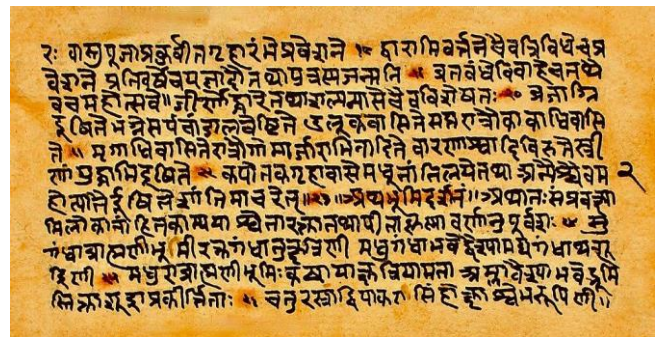 रः वास्तुपूजाप्रकुर्वीत गृहारंभे प्रवेशने ॥ द्वाराभिवर्त्तने चैव त्रिविधे च प्र
वेशने प्रतिवर्षं च यज्ञादौ तथा पुत्रस्य जन्मनि ॥ व्रतबंधे विवाहे च तथै
व च महोत्सवे ॥ जीर्णोद्धारे तथा शल्यन्यासे चैव विशेषतः ॥ २० वज्राग्नि
दूषिते भग्ने सर्पचांडालवेष्टिते उलूकवासिते सप्तरात्रौ काकाधिवासि
ते ॥ मृगाधिवासिते रात्रौ गोमार्जाराभिनादिते वारणाश्वादिविरुते स्त्री
णां युद्धाभिदूषिते ॥ कपोतकगृहावासे मधूनां निलये तथा अन्यैश्चैव म
होत्पाते दूषिते शांतिमाचरेत् ॥ ॥ अथ भूमिदर्शनं ॥ अथातः संप्रवक्ष्या
२
मि लोकानां हितकाम्यया श्वेता रक्ता तथा पीता कृष्णा वर्णानुपूर्वशः ॥ सु
गंधा ब्राह्मणी भूमी रक्तगंधा तु क्षत्रिणी मधुगंधा भवेद्वैश्या मद्यगंधा च शू
द्रिणी ॥ मधुरा ब्राह्मणी भूमिः कषाया क्षत्रिया मता अम्ला वैश्या भवेद्भूमि
स्तिक्ता शूद्रा प्रकीर्त्तिताः ॥ चतुरस्रां द्विपाकारां सिंहोक्षाश्वेभरूपिणीं ॥